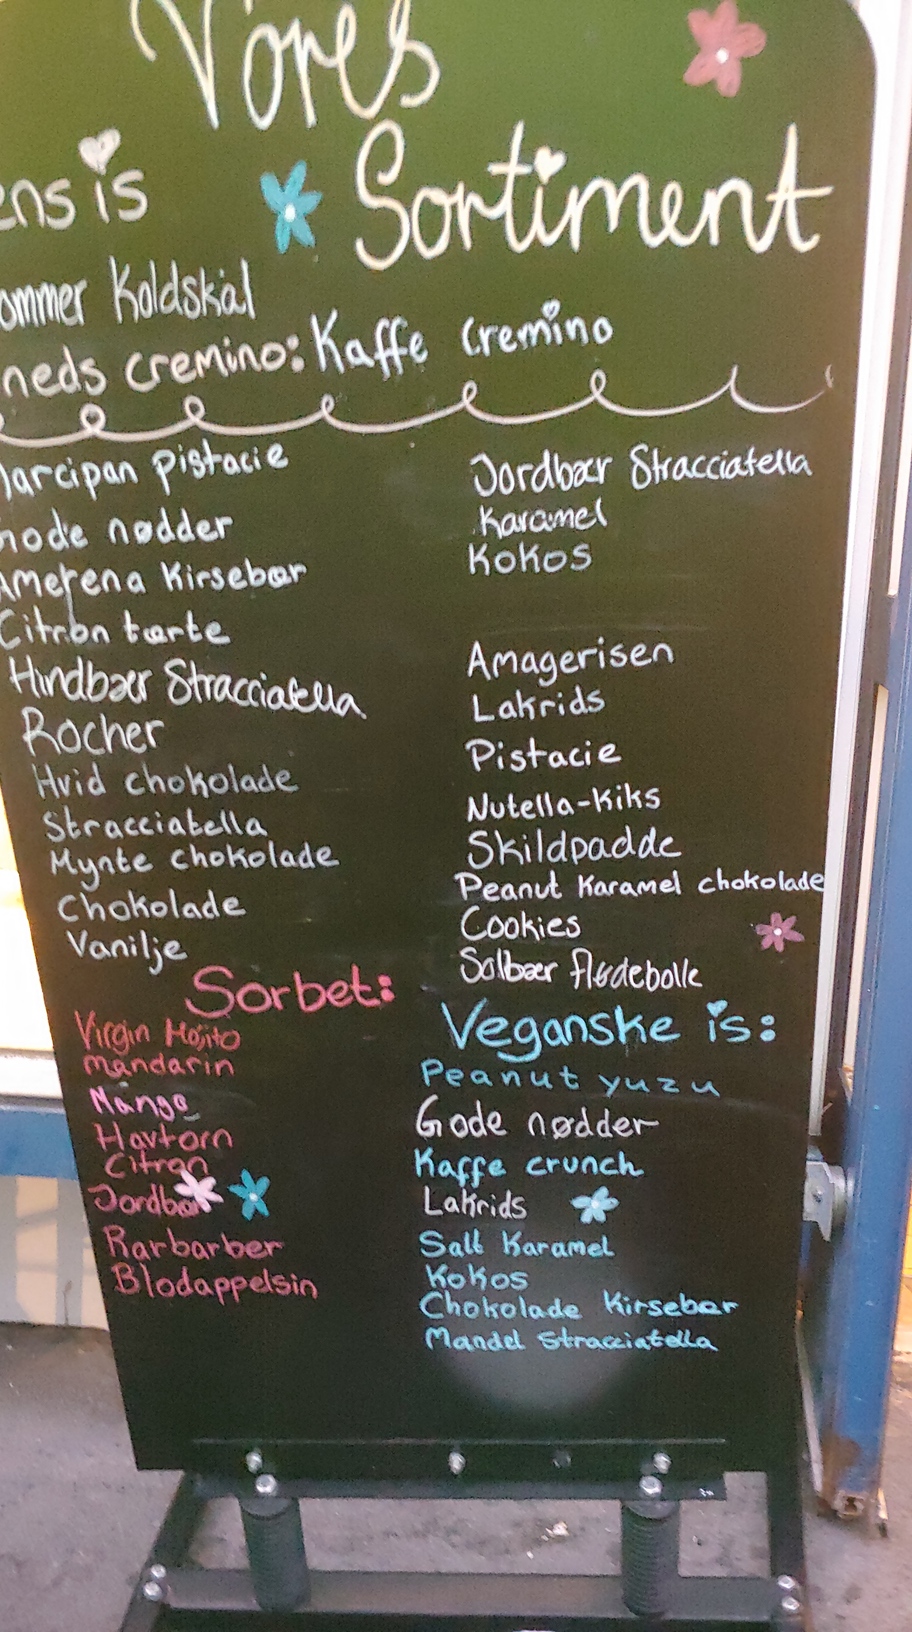 Vores
Sortiment
ens is
ommer Koldskål
neds cremino: Kaffe cremino
arcipan pistacie
ode nødder
Amerena Kirsebær
Citron tærte
Hindbær Stracciatella
Rocher
Hvid chokolade
Stracciatella
Mynte chokolade
Chokolade
Vanilje
Jordbær Stracciatella
Karamel
Kokos
Amagerisen
Lakrids
Pistacie
Nutella-Kiks
Skildpadde
Peanut Karamel chokolade
Cookies
Solbær flødebolle
Sorbet:
Virgin Mojito
mandarin
Mango
Havtorn
Citron
Jordbær
Rarbarber
Blodappelsin
Veganske is:
Peanut yuzu
Gode nødder
Kaffe crunch
Lakrids
Salt Karamel
Kokos
Chokolade Kirsebær
Mandel Stracciatella